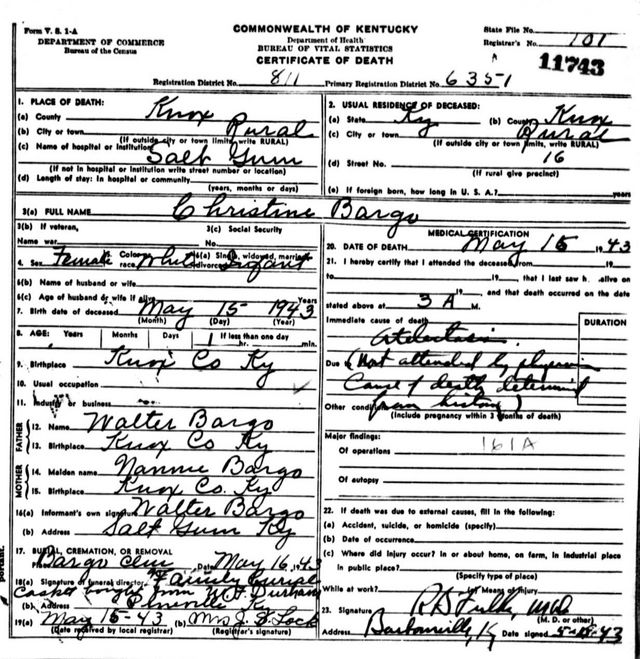 Form V. S. 1-A
DEPARTMENT OF COMMERCE
Bureau of the Census
COMMONWEALTH OF KENTUCKY
Department of Health
BUREAU OF VITAL STATISTICS
CERTIFICATE OF DEATH
State File No.
Registrar's No. 101
11743
Registration District No. 811 Primary Registration District No. 6351
1. PLACE OF DEATH:
(a) County Knox
(b) City or town Rural
(If outside city or town limits, write RURAL)
(c) Name of hospital or institution
Salt Gum
(If not in hospital or institution write street number or location)
(d) Length of stay: In hospital or community
(years, months or days)
2. USUAL RESIDENCE OF DECEASED:
(a) State Ky (b) County Knox
(c) City or town Rural
(If outside city or town limits, write RURAL)
(d) Street No. 16
(If rural give precinct)
(e) If foreign born, how long in U. S. A.? years
3(a) FULL NAME Christine Bargo
3(b) If veteran,
Name war
3(c) Social Security
No.
4. Sex Female Color or race White 6(a) Single, widowed, married, divorced Infant
6(b) Name of husband or wife
6(c) Age of husband or wife if alive Years
7. Birth date of deceased May 15 1943
(Month) (Day) (Year)
8. AGE: Years Months Days If less than one day
hr. min.
9. Birthplace Knox Co Ky
10. Usual occupation
11. Industry or business
FATHER
12. Name Walter Bargo
13. Birthplace Knox Co Ky
MOTHER
14. Maiden name Nannie Bargo
15. Birthplace Knox Co. Ky
16(a) Informant's own signature Walter Bargo
(b) Address Salt Gum Ky
17. BURIAL, CREMATION, OR REMOVAL
Bargo Cem Date May 16, 1943
18(a) Signature of funeral director Family burial
Casket bought from W.F. Durham
(b) Address Pineville Ky
19(a) May 15-43 (b) Mrs J. F. Lock
(Date received by local registrar) (Registrar's signature)
MEDICAL CERTIFICATION
20. DATE OF DEATH May 15 1943
21. I hereby certify that I attended the deceased from 19
19 , that I last saw h alive on
19 , and that death occurred on the date
stated above at 3 A M.
Immediate cause of death
DURATION
Atelectasis
Due to (Not attended by physician
Cause of death determined
Other conditions from history)
(Include pregnancy within 3 months of death)
161A
Major findings:
Of operations
Of autopsy
22. If death was due to external causes, fill in the following:
(a) Accident, suicide, or homicide (specify)
(b) Date of occurrence
(c) Where did injury occur? In or about home, on farm, in industrial place
in public place?
(Specify type of place)
While at work? (e) Means of Injury
23. Signature
(M. D. or other)
Address Barbourville, Ky Date signed